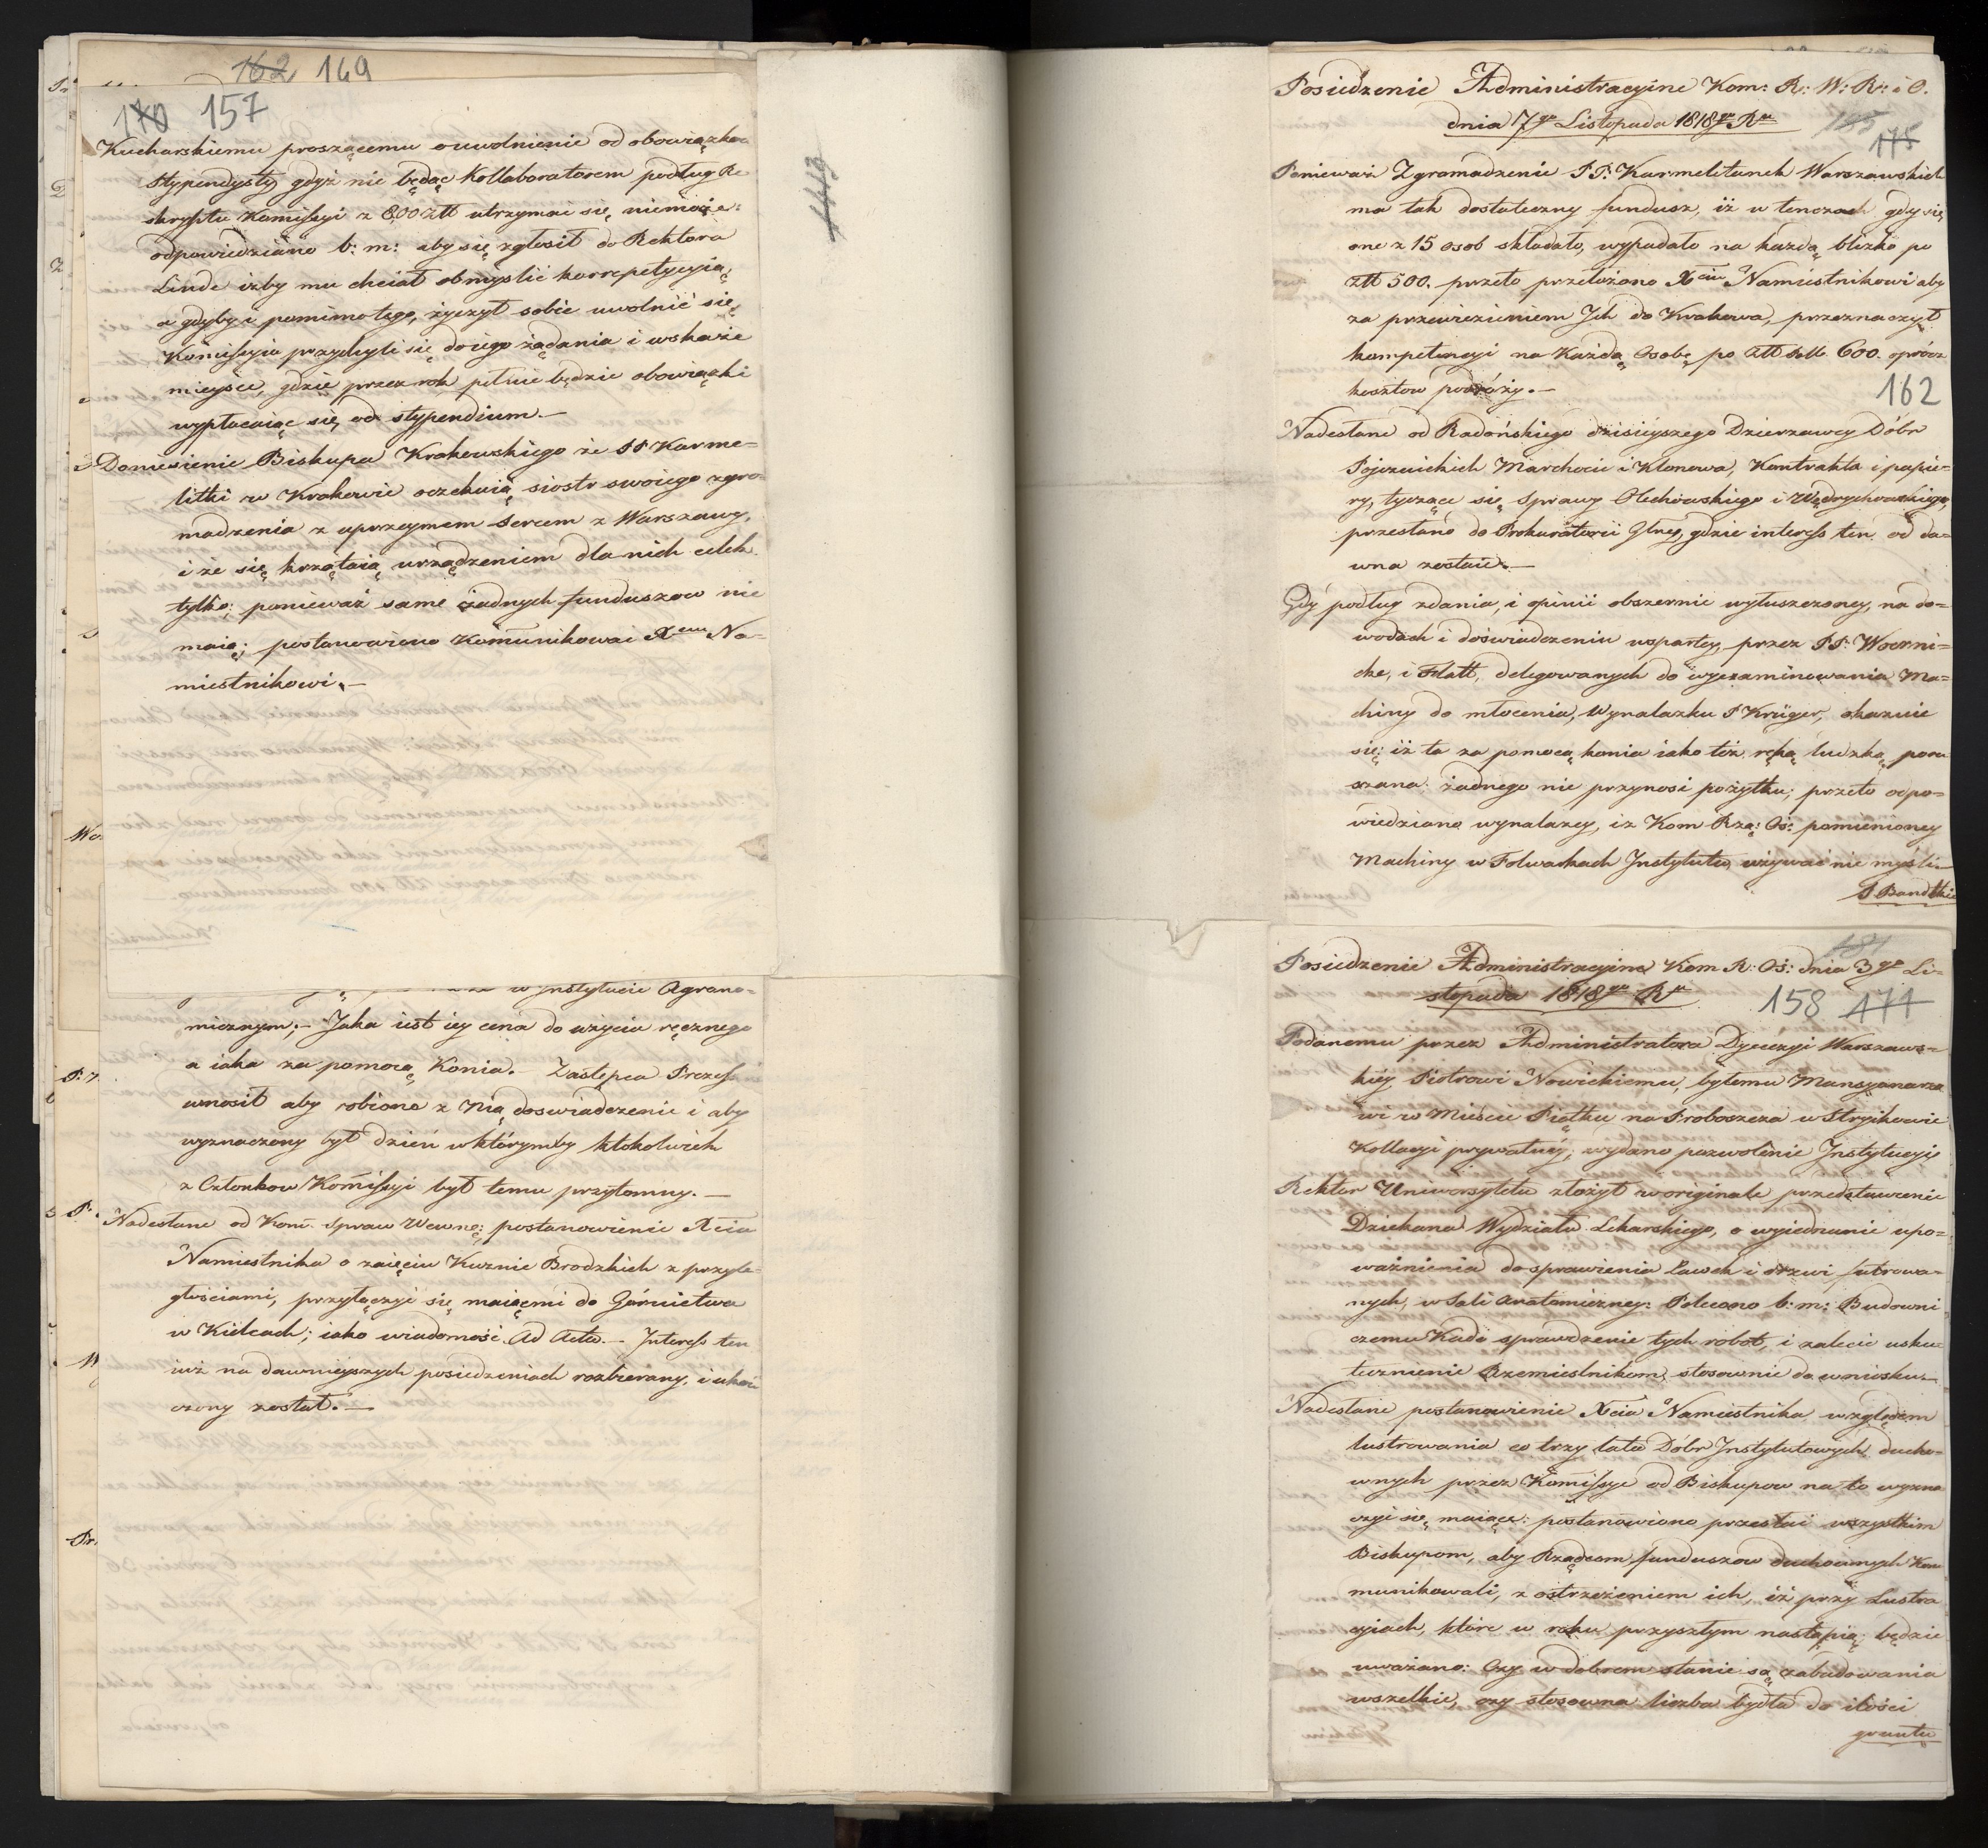 162 169
170 157
Kucharskiemu proszącemu o uwolnienie od obowiązkow
stypendysty, gdyż nie będąc Kollaboratorem podług Re
skryptu Komissyi z 800 złł utrzymać się niemoże:
odpowiedziano b: m: aby się zgłosił do Rektora
Linde iżby mu chciał obmyślić korrepetycyią,
a gdyby i pomimo tego, życzył sobie uwolnić się,
Komissyia przychyli się do iego żądania i wskaże
mieysce, gdzie przez rok pełnić będzie obowiązki
wypłacaiąc się od stypendium.—
Doniesienie Biskupa Krakowskiego że PP Karme=
litki w Krakowie oczekuią siostr swoiego zgro-
madzenia z uprzeymem sercem z Warszawy,
i że się krzątaią urządzeniem dla nich celek
tylko; ponieważ same żadnych funduszow nie
maią; postanowiono Kommunikować Xciu Na=
miestnikowi.—
w Instytucie Agrono=
micznym.— Jaka iest iey cena do użycia ręcznego
a iaka za pomocą Konia.— Zastępca Prezesa
wnosił aby robiono z Nią doswiadczenie i aby
wyznaczony był dzień w którymby ktokolwiek
z Członkow Komissyi był temu przytomny.—
Nadesłane od Kom. Spraw Wewnę: postanowienie Xcia
Namiestnika o zaięciu Kuznic Brodzkich z przyle=
głościami, przyłączyć się maiącemi do Górnictwa
w Kielcach; iako wiadomość Ad Acta.— Interess ten
iuż na dawnieyszych posiedzeniach rozbierany, i ukoń
czony został.—
1113
Posiedzenie Administracyine Kom: R: W: R: i O.
dnia 7go Listopada 1818go Ru
165
175
Ponieważ Zgromadzenie PP. Karmelitanek Warszawskich
ma tak dostateczny fundusz, iż w tenczas gdy się
one z 15 osob składało, wypadało na każdą blizko po
złł 500. przeto przełożono Xciu Namiestnikowi aby
za przewiezieniem Ich do Krakowa, przeznaczył
kompetencyi na Każdą Osobę po złł 600. oprócz
kosztow podróży.—
162
Nadesłane od Radońskiego dzisieyszego Dzierzawcy Dóbr
Pojezuickich Marchocic i Klonowa, Kontrakta i papie=
ry, tyczące się Sprawy Olechowskiego i Wędrychowskiego,
przesłano do Prokuratorii Glney, gdzie interess ten od da=
wna zostaie.—
Gdy podług zdania, i opinii obszernie wyłuszczoney, na do=
wodach i doświadczeniu wspartey, przez PP. Woerni=
cke, i Flatt, delegowanych do wyexaminowania Ma=
chiny do młocenia, Wynalazku P Krüger, okazuie
się: iż ta za pomocą konia iako też ręką ludzką poru
szana żadnego nie przynosi pożytku; przeto odpo=
wiedziano wynalazcy, iż Kom Rzą: Oś: pomienioney
Machiny w Folwarkach Instytutu, używać nie myśli.—
P Bandtkie
Posiedzenie Administracyine Kom R: Oś: dnia 3go Li=
stopada 1818go Ru
158 171
Podanemu przez Administratora Dyecezyi Warszaws=
kiéy Piotrowi Nowickiemu, byłemu Mansyonarzo
wi w Mieście Piątku na Proboszcza w Strykowie
Kollacyi prywatnéy, wydano pozwolenie Instytucyi
Rektor Uniwersytetu złożył w originale przedstawienie
Dziekana Wydziału Lekarskiego, o wyiednanie upo=
ważnienia do sprawienia Ławek i drzwi futrowa=
nych, w Sali Anatomiczney: Polecono b: m: Budowni
czemu Kado sprawdzenie tych robot, i zalecić usku=
tecznienie Rzemieslnikom, stosownie do wniosku.—
Nadesłane postanowienie Xcia Namiestnika względem
lustrowania co trzy lata Dóbr Instytutowych ducho=
wnych przez Kommissye od Biskupow na to wyzna
czyć się maiące: postanowiono przesłać wszystkim
Biskupom, aby Rządcom funduszow duchownych Kom
munikowali, z ostrzeżeniem ich, iż przy Lustra
cyiach, które w roku przyszłym nastąpią będzie
uważano: Czy w dobrem stanie są zabudowania
wszelkie, czy stosowna liczba bydła do ilości
gruntu